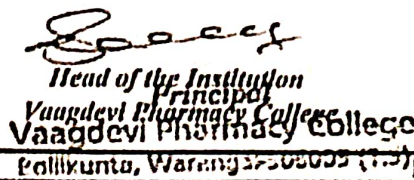 Head of the Institution
Principal
Vaagdevi Pharmacy College
Vaagdevi Pharmacy College
Bollikunta, Warangal-506005 (T.S)